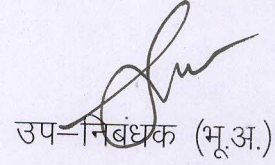 उप–निबंधक (भू.अ.)